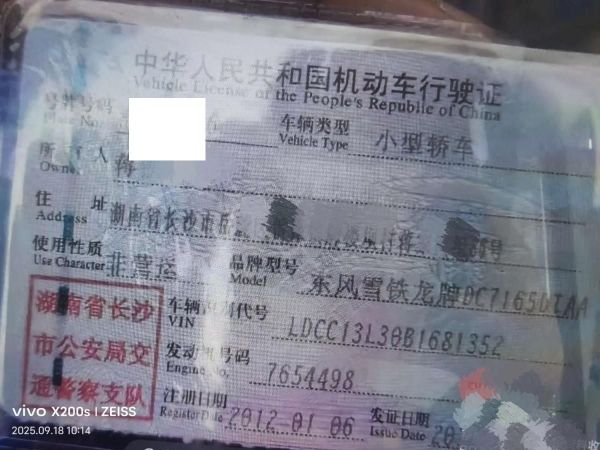 中华人民共和国机动车行驶证
Vehicle License of the People's Republic of China
号牌号码
Plate No.
车辆类型 小型轿车
Vehicle Type
所有人 蒋
Owner
住址 湖南省长沙市岳 号
Address
使用性质 非营运
Use Character
品牌型号 东风雪铁龙牌DC7165DTAA
Model
湖南省长沙
市公安局交
通警察支队
车辆识别代号 LDCC13L30B1681352
VIN
发动机号码 7654498
Engine No.
注册日期 2012-01-06
Register Date
发证日期 20
Issue Date
vivo X200s | ZEISS
2025.09.18 10:14